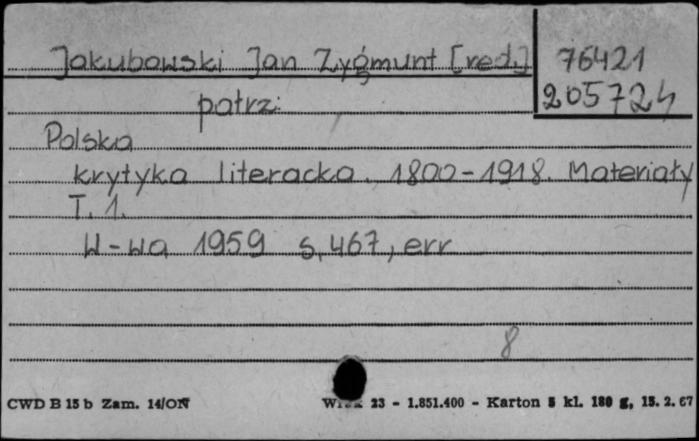 Jakubowski Jan Zygmunt [red.] 76421
205724
patrz:
Polska
krytyka literacka. 1800-1918. Materiały
T. 1.
W-wa 1959 s. 467, err
8
CWD B 15 b Zam. 14/ON 23 - 1.851.400 - Karton 5 kl. 180 g, 15. 2. 67